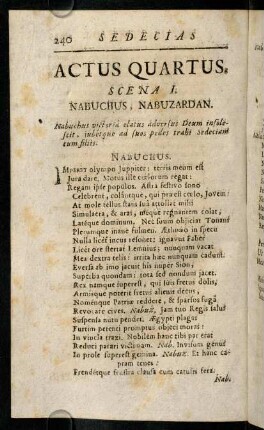 240 SEDECIAS
ACTUS QUARTUS.
SCENA I.
NABUCHUS, NABUZARDAN.
Nabuchus victoriâ elatus adversus Deum insolescit, jubetque ad suos pedes trahi Sedeciam
cum filiis.
NABUCHUS.
IMPERET olympo Juppiter: terris meum est
Jura dare. Motus ille cursorum regat:
Regam ipse populos. Astra festivo sono
Celebrent, colantque, qui præest cœlo, Jovem:
At mole tellus stans suâ attollat mihi
Simulacra, & aras, usque regnantem colat,
Latéque dominum. Nec suum objiciat Tonans
Plerumque inane fulmen. Æthnæo in specu
Nulla licèt incus resonet: ignavus Faber
Licèt ore stertat Lemnius: nunquam vacat
Mea dextra telis: irrita hæc nunquam cadunt.
Eversa ab imo jacuit his nuper Sion,
Superba quondam: tota sed nondum jacet.
Rex namque superest, qui sui fretus dolis,
Armisque potenti fretus alienis decus,
Nomenque Patriæ reddere, & sparsos fugâ
Revocare cives. Nabuz. Jam tuo Regis salus
Suspensa nutu pendet. Ægypti plagas
Furtim petenti promptus objeci moras:
In vincla traxi. Nobilem hanc tibi par erat
Reduci parari victimam. Nab. Invisum genus
In prole superest gemina. Nabuz. Et hanc ca-
pram tenes:
Frendetque frustra clausa cum catulis fera.
Nab.